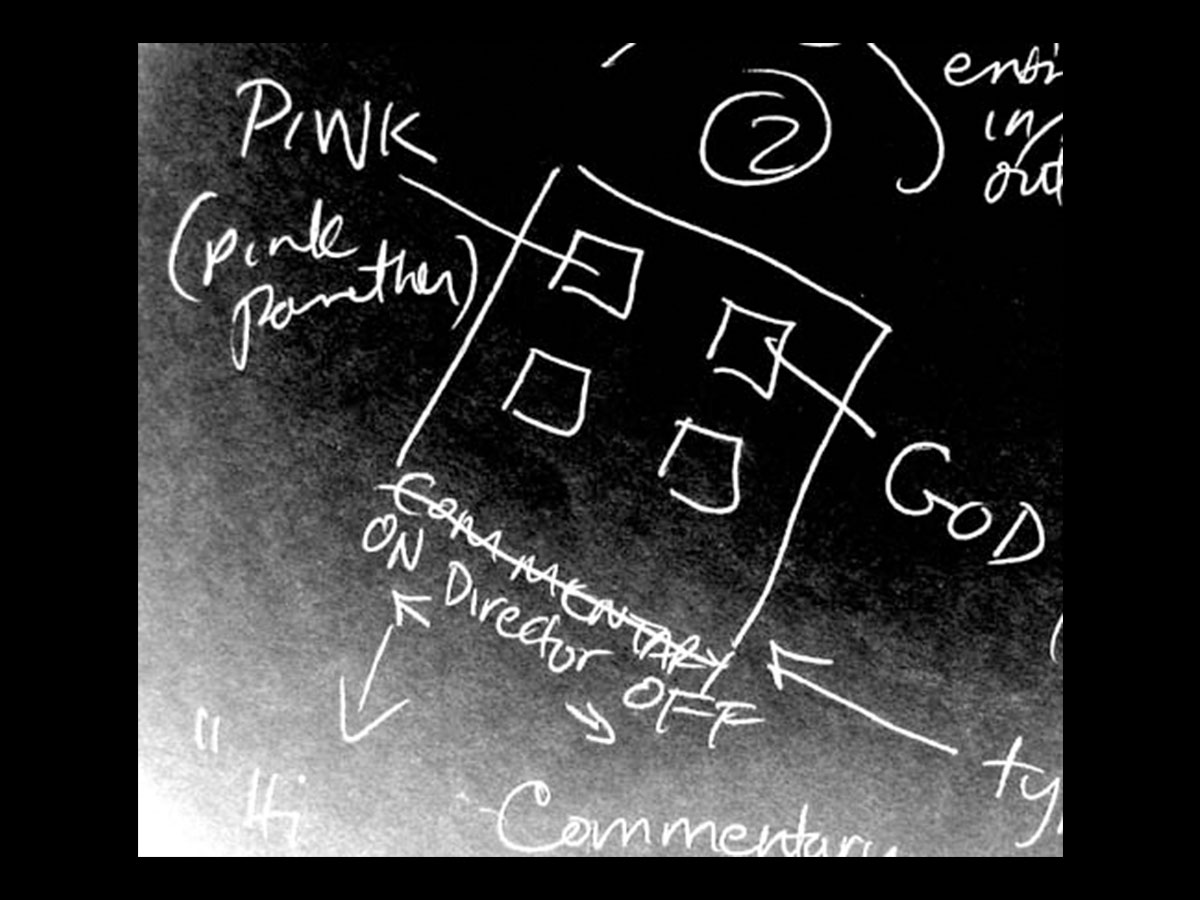 PINK
(pink
panther)
2
in
out
GOD
COMMENTARY
ON Director OFF
"
Hi
Commentary